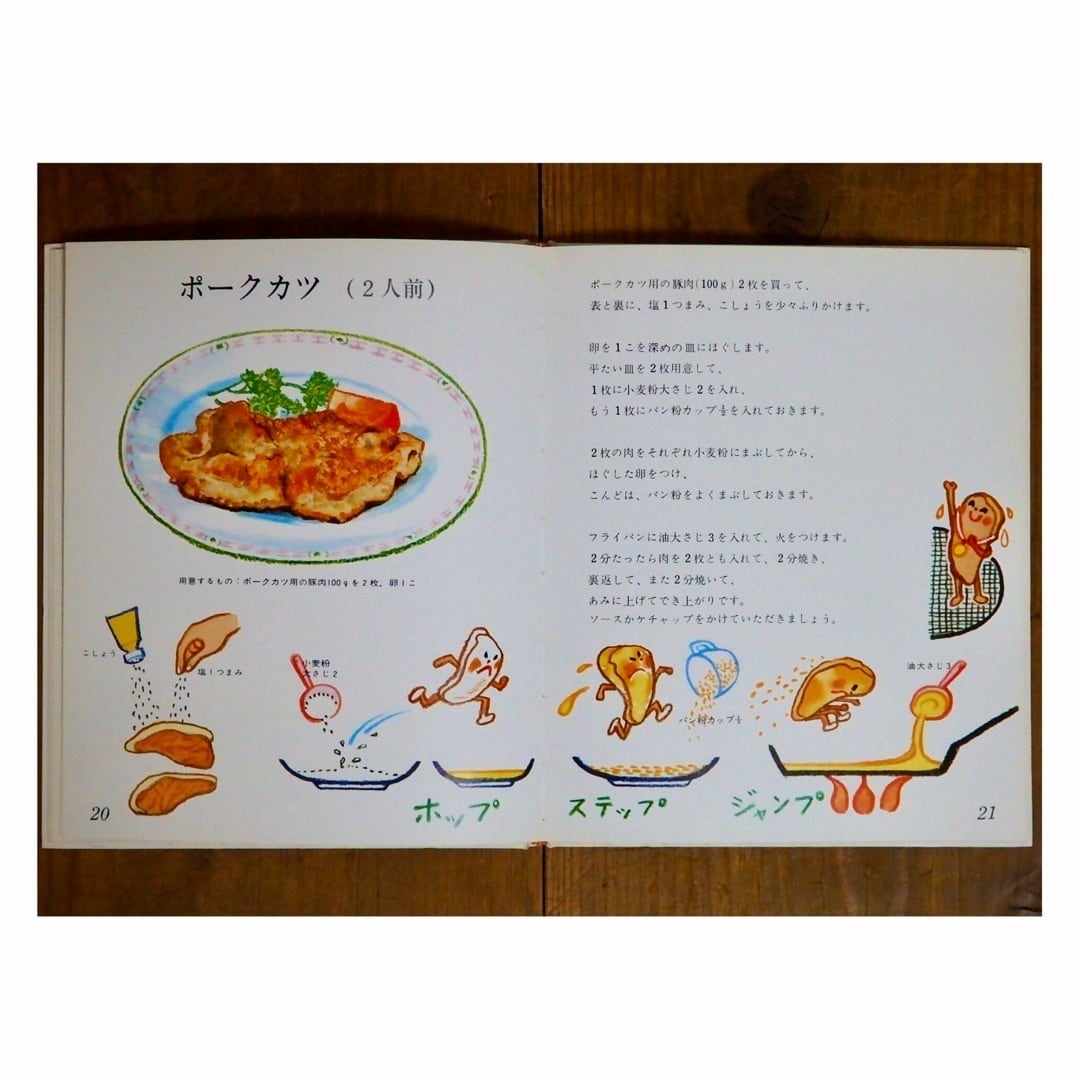 ポークカツ (2人前)
用意するもの:ポークカツ用の豚肉100gを2枚, 卵1こ
こしょう
塩1つまみ
小麦粉
大さじ2
ホップ
20
ポークカツ用の豚肉(100g)2枚を買って、
表と裏に、塩1つまみ、こしょうを少々ふりかけます。
卵を1こを深めの皿にほぐします。
平たい皿を2枚用意して、
1枚に小麦粉大さじ2を入れ、
もう1枚にパン粉カップ½を入れておきます。
2枚の肉をそれぞれ小麦粉にまぶしてから、
ほぐした卵をつけ、
こんどは、パン粉をよくまぶしておきます。
フライパンに油大さじ3を入れて、火をつけます。
2分たったら肉を2枚とも入れて、2分焼き、
裏返して、また2分焼いて、
あみに上げてでき上がりです。
ソースかケチャップをかけていただきましょう。
パン粉カップ½
油大さじ3
ステップ
ジャンプ
21